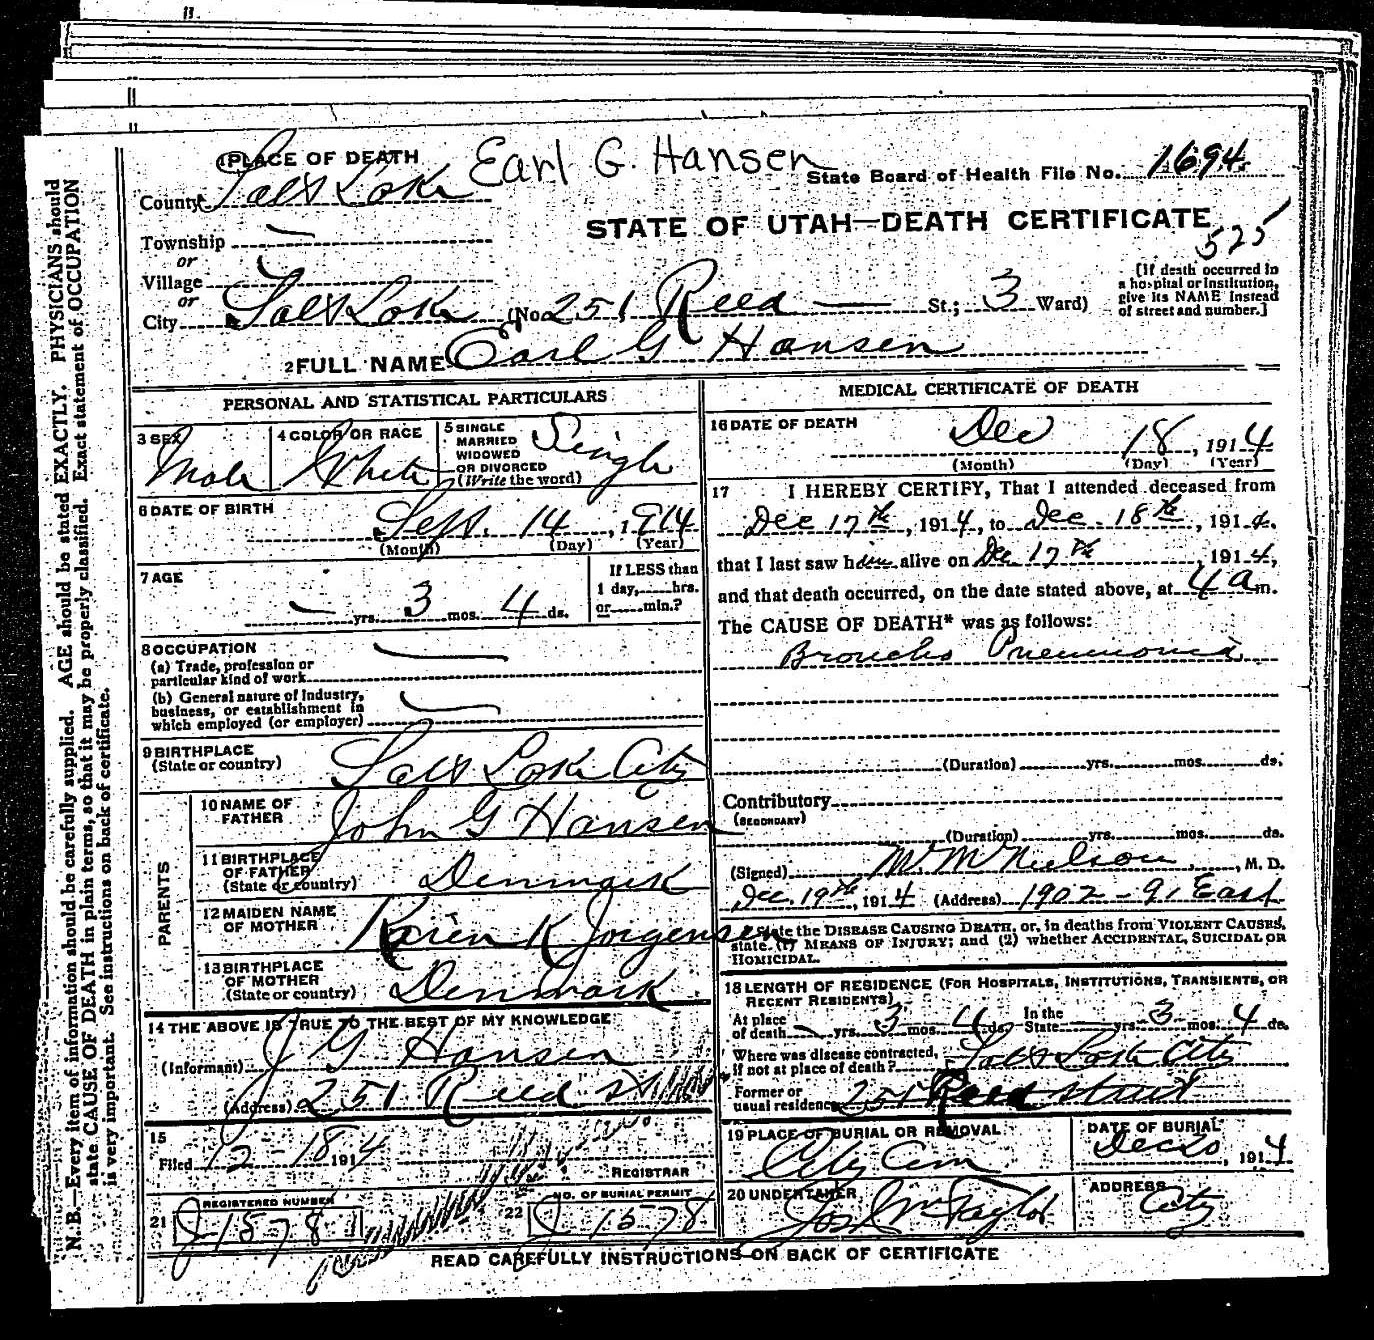 1 PLACE OF DEATH
Earl G. Hansen
State Board of Health File No. 1694
County Salt Lake
STATE OF UTAH—DEATH CERTIFICATE
525
Township —
or
Village
or
City Salt Lake (No. 251 Reed — St.; 3 Ward)
[If death occurred in
a hospital or institution,
give its NAME instead
of street and number.]
2 FULL NAME Earl G Hansen
PERSONAL AND STATISTICAL PARTICULARS
3 SEX Male
4 COLOR OR RACE White
5 SINGLE
MARRIED
WIDOWED
OR DIVORCED
(Write the word) Single
6 DATE OF BIRTH
Sept. 14, 1914
(Month) (Day) (Year)
7 AGE
— yrs. 3 mos. 4 ds.
If LESS than
1 day,......hrs.
or......min.?
8 OCCUPATION
(a) Trade, profession or
particular kind of work —
(b) General nature of industry,
business, or establishment in
which employed (or employer) —
9 BIRTHPLACE
(State or country) Salt Lake City
PARENTS
10 NAME OF
FATHER John G Hansen
11 BIRTHPLACE
OF FATHER
(State or country) Denmark
12 MAIDEN NAME
OF MOTHER Karen K Jorgensen
13 BIRTHPLACE
OF MOTHER
(State or country) Denmark
14 THE ABOVE IS TRUE TO THE BEST OF MY KNOWLEDGE
(Informant) J G Hansen
(Address) 251 Reed st
15
Filed 12-18 1914
REGISTRAR
21 REGISTERED NUMBER
J-1578
22 NO. OF BURIAL PERMIT
J-1578
MEDICAL CERTIFICATE OF DEATH
16 DATE OF DEATH
Dec 18, 1914
(Month) (Day) (Year)
17 I HEREBY CERTIFY, That I attended deceased from
Dec 17th, 1914, to Dec. 18th, 1914,
that I last saw him alive on Dec 17th, 1914,
and that death occurred, on the date stated above, at 4 a m.
The CAUSE OF DEATH* was as follows:
Broncho Pneumonia
(Duration)......yrs......mos......ds.
Contributory
(SECONDARY)
(Duration)......yrs......mos......ds.
(Signed) W. M Nielson, M. D.
Dec. 19th, 1914 (Address) 1902 - 9th East
*State the DISEASE CAUSING DEATH, or, in deaths from VIOLENT CAUSES,
state (1) MEANS OF INJURY; and (2) whether ACCIDENTAL, SUICIDAL OR
HOMICIDAL.
18 LENGTH OF RESIDENCE (FOR HOSPITALS, INSTITUTIONS, TRANSIENTS, OR
RECENT RESIDENTS)
At place
of death — yrs. 3 mos. 4 ds.
In the
State yrs. 3 mos. 4 ds.
Where was disease contracted,
if not at place of death? Salt Lake City
Former or
usual residence 251 Reed street
19 PLACE OF BURIAL OR REMOVAL
City Cem
DATE OF BURIAL
Dec 20, 1914
20 UNDERTAKER
Jos Wm Taylor
ADDRESS
City
READ CAREFULLY INSTRUCTIONS ON BACK OF CERTIFICATE
N. B.—Every item of information should be carefully supplied. AGE should be stated EXACTLY. PHYSICIANS should
state CAUSE OF DEATH in plain terms, so that it may be properly classified. Exact statement of OCCUPATION
is very important. See instructions on back of certificate.